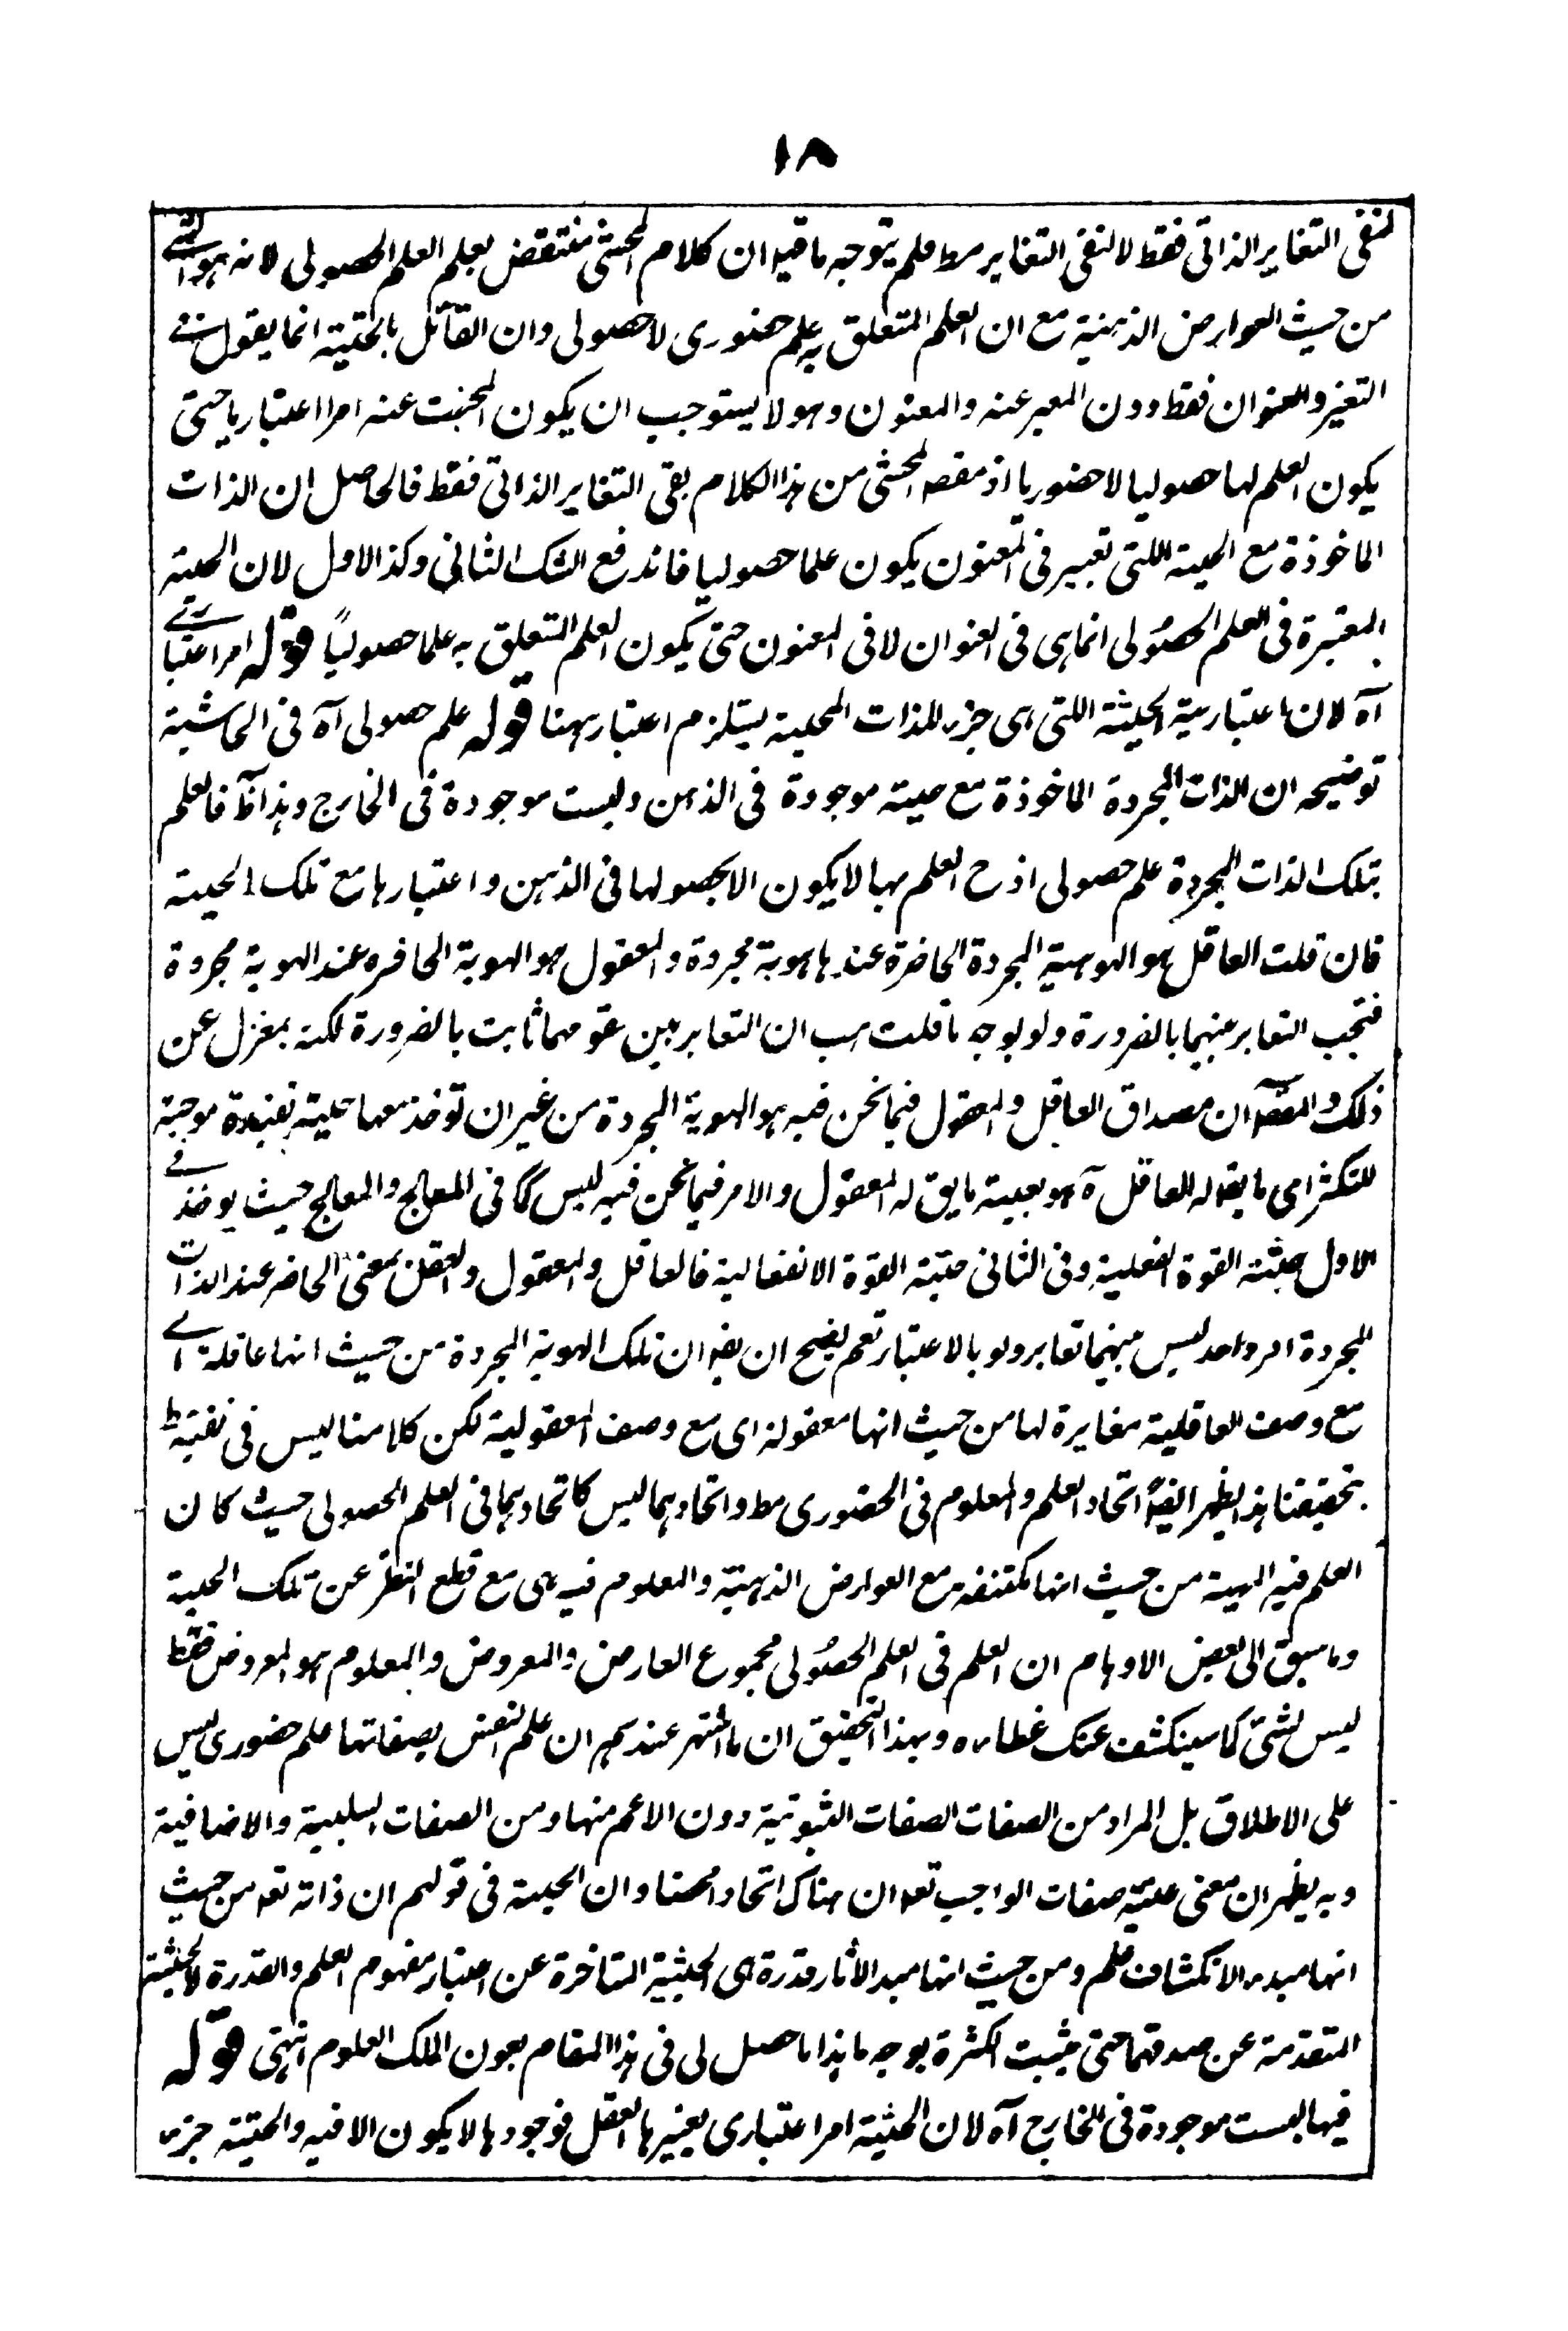 ١٨
لنفى التغاير الذاتى فقط لا لنفى التغاير مط فلم يتوجه ما قيل ان كلام المحشى منتقض بعلم العلم الحصولى لانه هو الشئ
من حيث العوارض الذهنية مع ان العلم المتعلق به علم حضورى لا حصولى وان القائل بالحيثية انما يقول فى
التغير والعنوان فقط دون المعبر عنه والمعنون وهو لا يستوجب ان يكون المجنث عنه امرا اعتباريا حتى
يكون العلم لها حصوليا لا حضوريا اذ مقصد المحشى من هذا الكلام بقى التغاير الذاتى فقط فالحاصل ان الذات
الماخوذة مع الحيثية اللتى تعبير فى المعنون يكون علما حصوليا فاندفع الشك الثانى وكذا الاول لان الحيثية
المعتبرة فى العلم الحصولى انما هى فى العنوان لا فى المعنون حتى يكون العلم المتعلق به علما حصولياً قوله امر اعتبارى
آه لان اعتبارية الحيثة اللتى هى جزء للذات المحيثة يستلزم اعتباريهنا قوله علم حصولى آه فى الحاشية
توضيحه ان الذات المجردة الماخوذة مع حيثية موجودة فى الذهن وليست موجودة فى الخارج وهذا ظ فالعلم
بتلك الذات المجردة علم حصولى اذ ح العلم بها لا يكون الا بحصولها فى الذهن واعتبارها مع تلك الحيثية
فان قلت العاقل هو الهوية المجردة الحاضرة عندها هوية مجردة والمعقول هو الهوية الحاضره عند الهوية مجردة
فتجب التغاير بينهما بالضرورة ولو بوجه ما قلت هب ان التغاير بين مفهومهما ثابت بالضرورة لكنه بمعزل عن
ذلك والمقصد ان مصداق العاقل والمعقول فيما نحن فيه هو الهوية المجردة من غير ان توخذ معها حيثية تقييدة موجبة
للتكثر اى ما يقوله للعاقل آه هو بعينه ما يق له المعقول والامر فيما نحن فيه ليس كما فى المعالج والمعالج حيث يوخذ فى
الاول حيثية القوة الفعلية وفى الثانى حيثية القوة الانفعالية فالعاقل والمعقول والعقل بمعنى الحاضر عند الذات
المجردة امر واحد ليس بينهما تغاير ولو بالاعتبار نعم يصح ان يق ان تلك الهوية المجردة من حيث انها عاقلة اى
مع وصف العاقلية مغايرة لها من حيث انها معقولة اى مع وصف المعقولية لكن كلامنا ليس فى
بتحقيقنا هذا يظهر ايضا اتحاد العلم والمعلوم فى الحضورى مط واتحادهما ليس كاتحادهما فى العلم الحصولى حيث كان
العلم فيه المهية من حيث انها مكتنفه مع العوارض الذهنية والمعلوم فيه هى مع قطع النظر عن تلك الحيثية
وما سبق الى بعض الاوهام ان العلم فى العلم الحصولى مجموع العارض والمعروض والمعلوم هو المعروض فقط
ليس بشئ كما سينكشف عنك غطاءه وبهذا التحقيق ان ما اشتهر عندهم ان علم النفس بصفاتها علم حضورى ليس
على الاطلاق بل المراد من الصفات الصفات الثبوتية دون الاعم منها ومن الصفات السلبية والاضافية
وبه يظهر ان معنى عينية صفات الواجب تعه ان هناك اتحادا محضا وان الحيثية فى قولهم ان ذاته تعه من حيث
انها مبدء الانكشاف علم ومن حيث انها مبدأ الآثار قدرة هى الحيثية المتاخرة عن اعتبار مفهوم العلم والقدرة لا الحيثية
المتقدمة عن صدقهما حتى يثبت الكثرة بوجه ما هذا ما حصل لى فى هذا المقام بعون الملك العلوم انتهى قوله
فيها ليست موجودة فى الخارج آه لان الحيثية امر اعتبارى يعتبرها العقل فوجودها لا يكون الا فيه والحيثية جزء